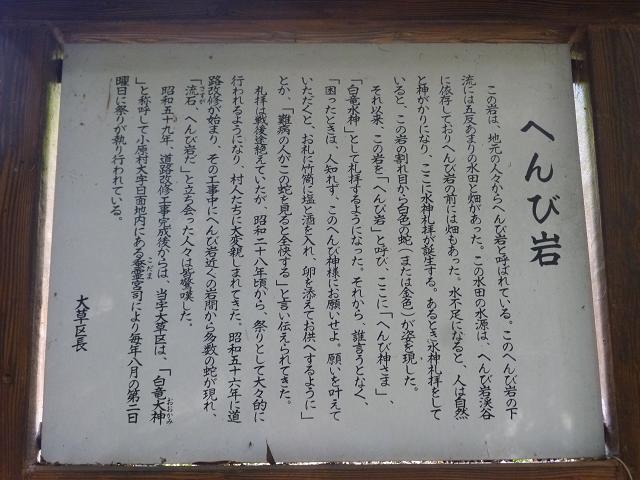 へんび岩
この岩は、地元の人々からへんび岩と呼ばれている。このへんび岩の下
流には五反あまりの水田と畑があった。この水田の水源は、へんび岩渓谷
に依存しておりへんび岩の前には畑もあった。水不足になると、人は自然
と神がかりになり、ここに水神礼拝が誕生する。あるとき水神礼拝をして
いると、この岩の割れ目から白色の蛇(または金色)が姿を現した。
それ以来、この岩を「へんび岩」と呼び、ここに「へんび神さま」、
「白竜水神」として礼拝するようになった。それから、誰言うとなく、
「困ったときは、人知れず、このへんび神様にお願いせよ。願いを叶えて
いただくと、お礼に竹筒に塩と酒を入れ、卵を添えてお供へするように」
とか、「難病の人がこの蛇を見ると全快する」と言い伝えられてきた。
礼拝は戦後途絶えていたが、昭和二十八年頃から、祭りとして大々的に
行われるようになり、村人たちに大変親しまれてきた。昭和五十六年に道
路改修が始まり、その工事中にへんび岩近くの岩間から多数の蛇が現れ、
「流石へんび岩だ」と立ち会った人々は皆驚嘆した。
昭和五十九年、道路改修工事完成後からは、当字大草区は、「白竜大神
」と称呼して小原村大字日面地内にある
宮司により毎年八月の第二日
曜日に祭りが執り行われている。
大草区長